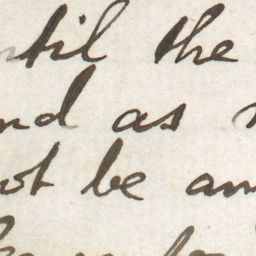 ntil the
nd as
ot be an